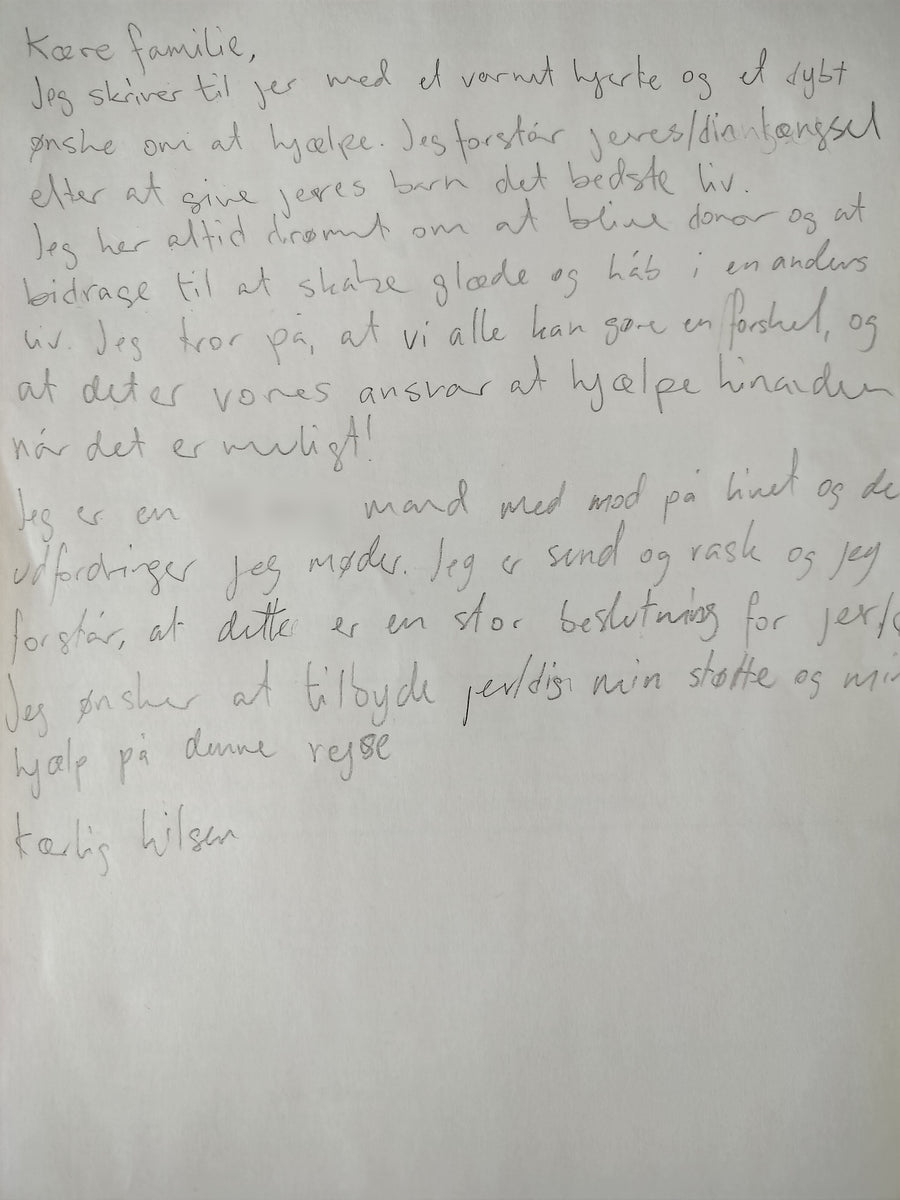 Kære familie,
Jeg skriver til jer med et varmt hjerte og et dybt
ønske om at hjælpe. Jeg forstår jeres/din længsel
efter at give jeres barn det bedste liv.
Jeg har altid drømt om at blive donor og at
bidrage til at skabe glæde og håb i en anders
liv. Jeg tror på, at vi alle kan gøre en forskel, og
at det er vores ansvar at hjælpe hinanden
når det er muligt!
Jeg er en mand med mod på livet og de
udfordringer jeg møder. Jeg er sund og rask og jeg
forstår, at dette er en stor beslutning for jer/
Jeg ønsker at tilbyde jer/dig min støtte og min
hjælp på denne rejse
Kærlig hilsen